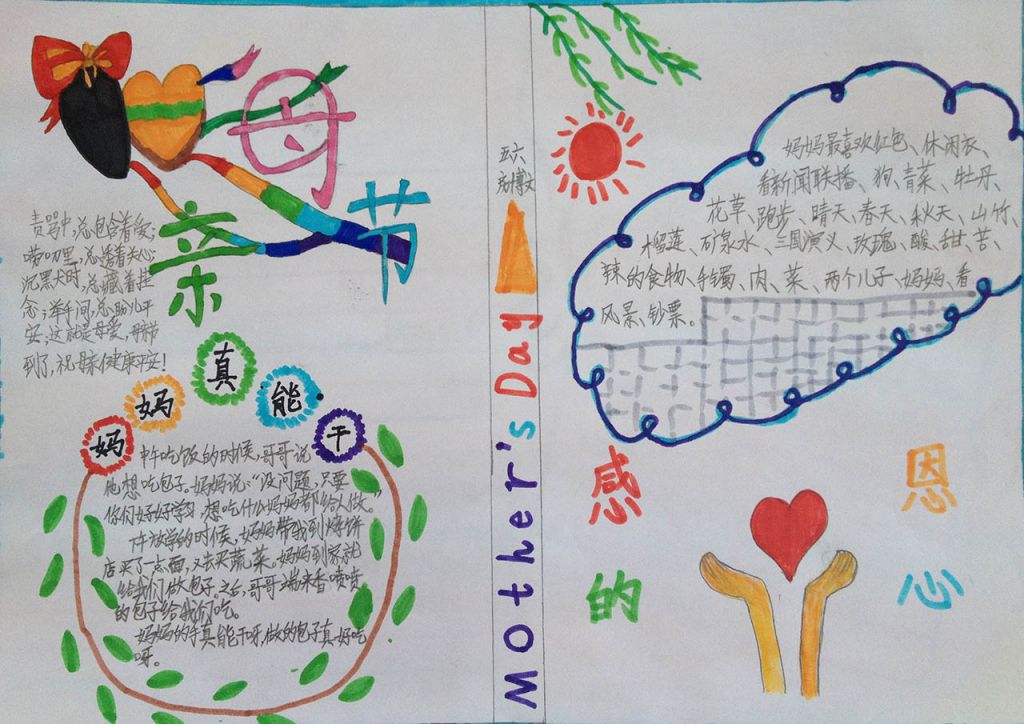 母
亲
节
责骂中,总包含着爱;
唠叨里,总透着关心;
沉黑犬时,总藏着挂
念;举手间,总盼儿平
安;这就是母爱,母亲节
到了,祝母亲健康平安!
妈妈真能干
中午吃饭的时候,哥哥说
他想吃包子。妈妈说:“没问题,只要
你们好好学习,想吃什么妈妈都给认做。”
下午放学的时候,妈妈带我到烧饼
店买了一点面,又去买蔬菜。妈妈到家就
给我们做包子,之后,哥哥端来香喷喷
的包子给我们吃。
妈妈的手真能干呀,做的包子真好吃
呀。
五六
博文
Mother's Day
妈妈最喜欢红包、休闲衣、
看新闻联播、狗、青菜、牡丹、
花草、跑步、晴天、春天、秋天、山竹、
榴莲、矿泉水、三国演义、玫瑰、酸、甜、苦、
辣的食物、手镯、肉、菜、两个儿子、妈妈、看
风景、钞票。
感恩
的心